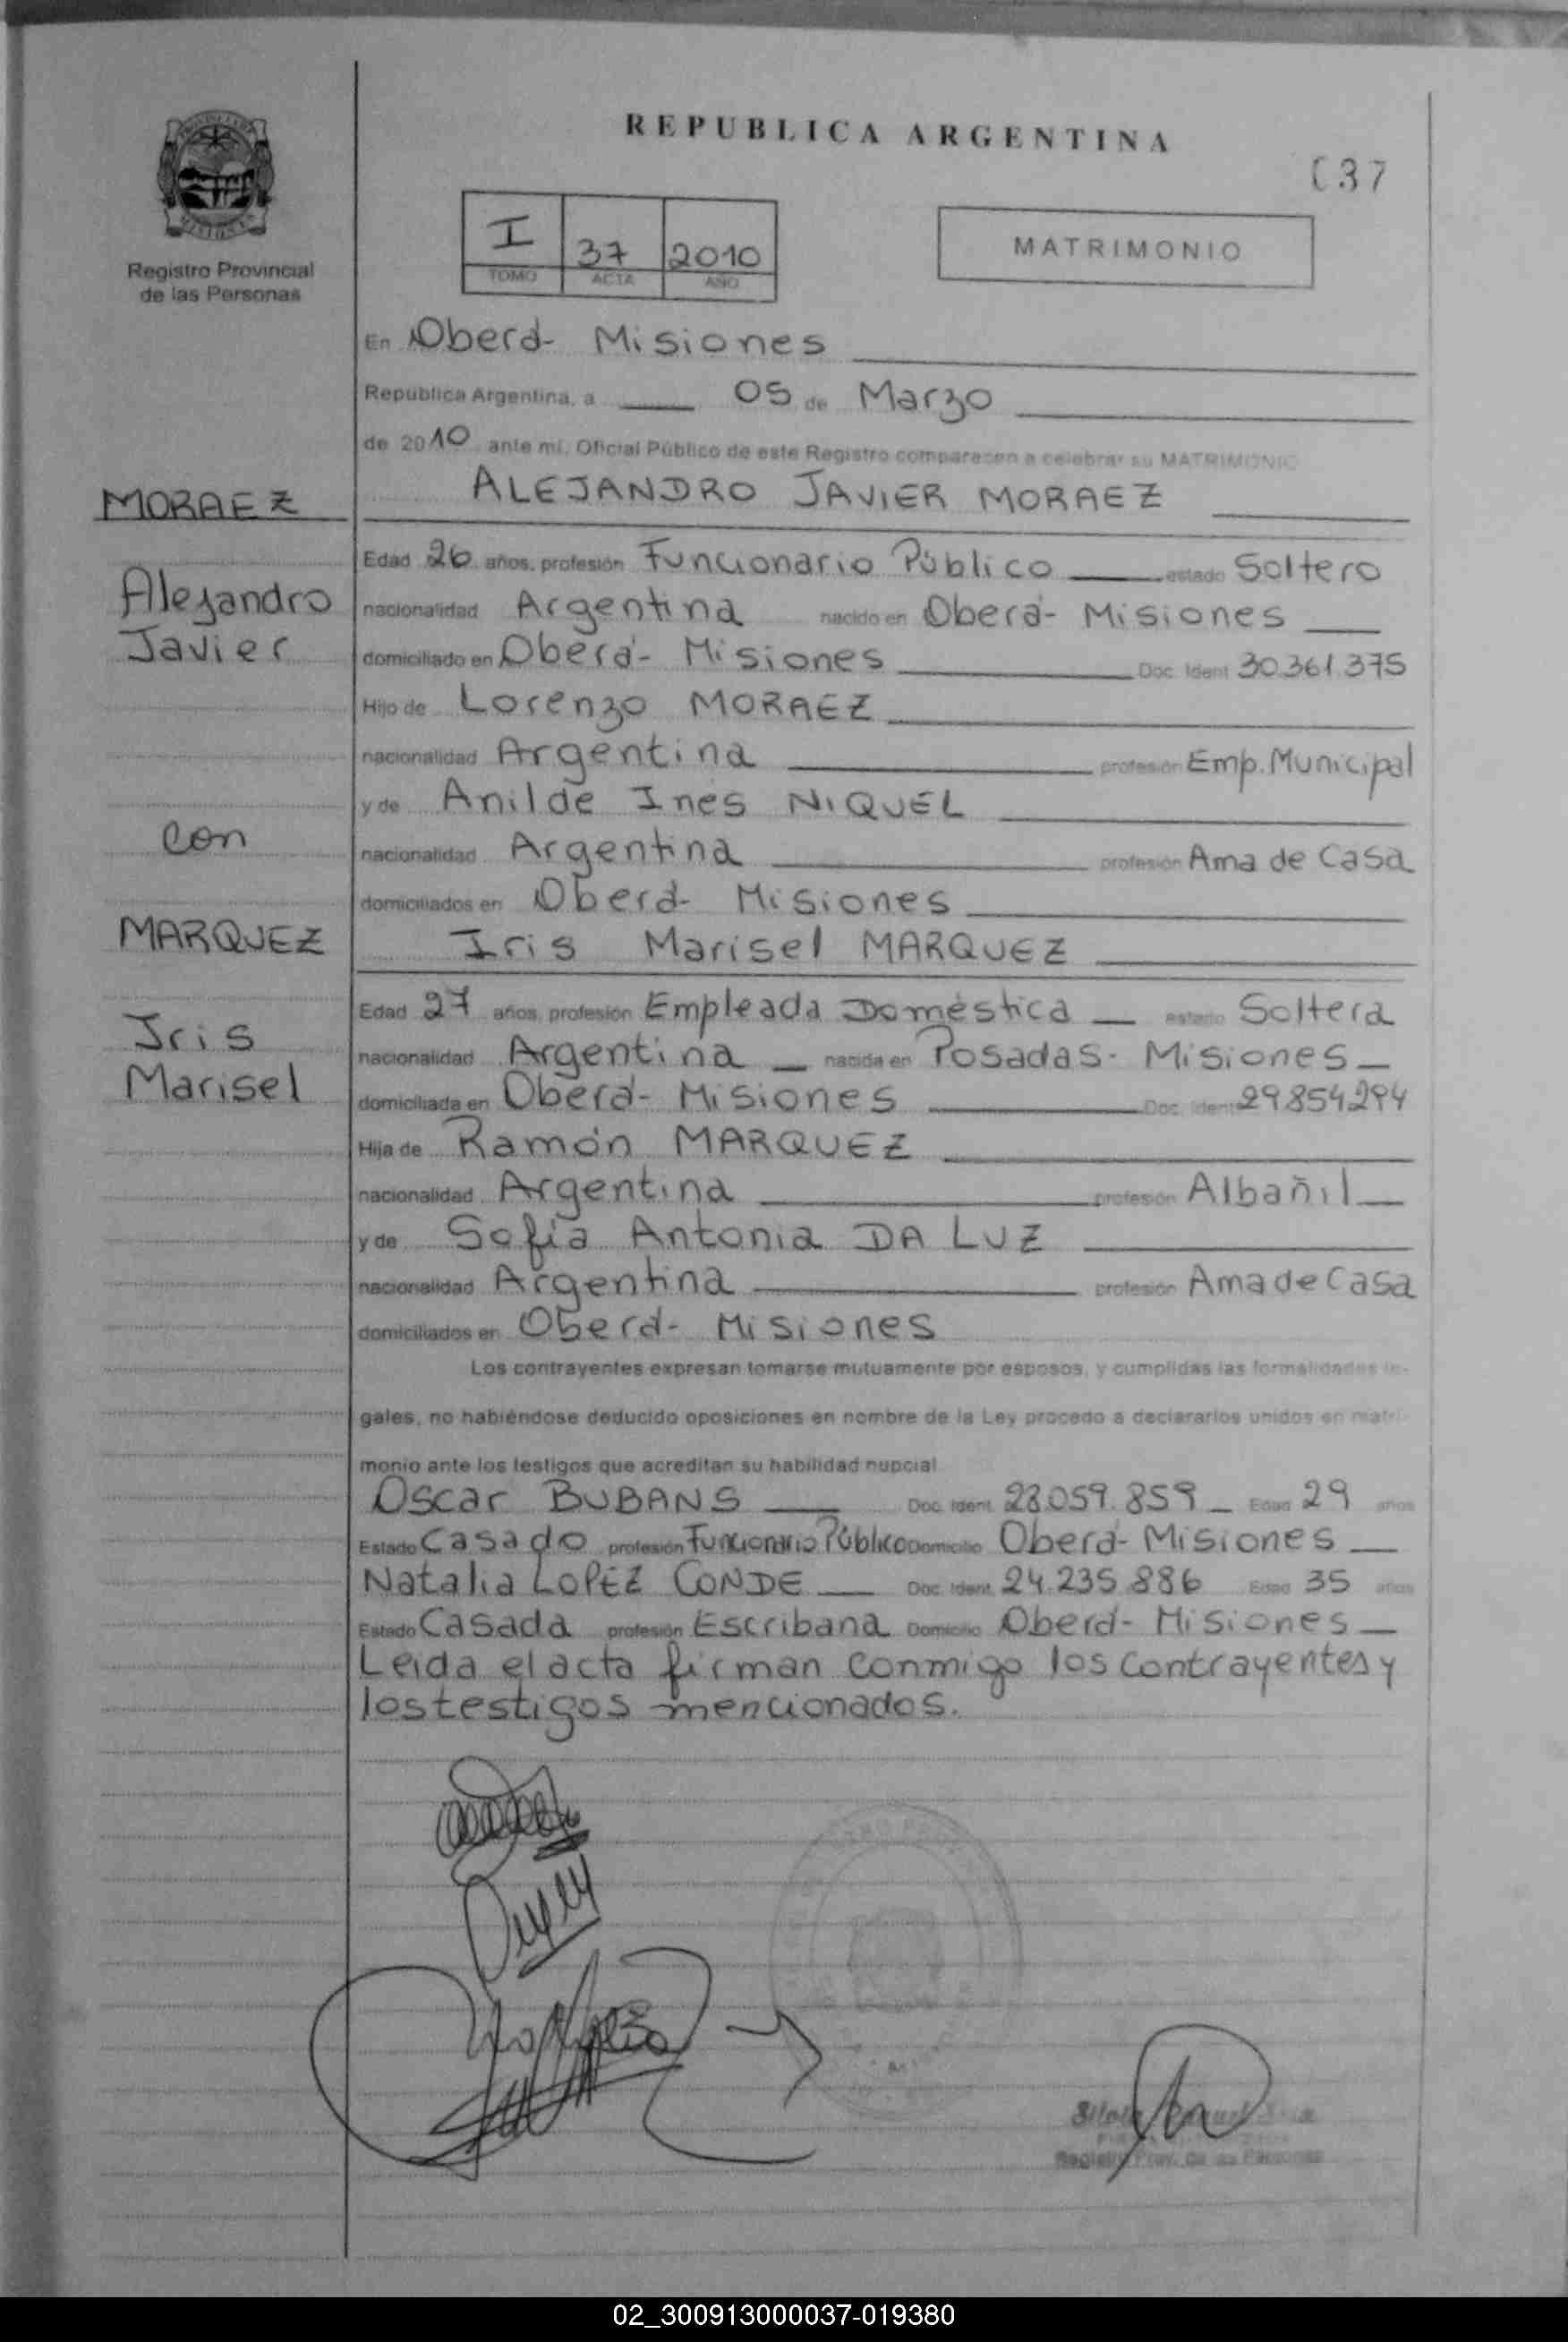 REPUBLICA ARGENTINA
37
Registro Provincial
de las Personas
I 37 2010
TOMO ACTA AÑO
MATRIMONIO
En Oberá- Misiones
República Argentina, a 05 de Marzo
de 2010 ante mi, Oficial Público de este Registro comparecen a celebrar su MATRIMONIO
MORAEZ
ALEJANDRO JAVIER MORAEZ
Edad 26 años, profesión Funcionario Público estado Soltero
Alejandro
nacionalidad Argentina nacido en Oberá- Misiones
Javier
domiciliado en Oberá- Misiones Doc. Ident 30.361.375
Hijo de Lorenzo MORAEZ
nacionalidad Argentina profesión Emp. Municipal
y de Anilde Ines NIQUEL
con
nacionalidad Argentina profesión Ama de Casa
domiciliados en Oberá- Misiones
MARQUEZ
Iris Marisel MARQUEZ
Edad 27 años, profesión Empleada Doméstica estado Soltera
Iris
nacionalidad Argentina nacida en Posadas- Misiones
Marisel
domiciliada en Oberá- Misiones Doc. Ident 29854294
Hija de Ramón MARQUEZ
nacionalidad Argentina profesión Albañil
y de Sofía Antonia DA LUZ
nacionalidad Argentina profesión Ama de Casa
domiciliados en Oberá- Misiones
Los contrayentes expresan tomarse mutuamente por esposos, y cumplidas las formalidades le-
gales, no habiéndose deducido oposiciones en nombre de la Ley procedo a declararlos unidos en matri-
monio ante los testigos que acreditan su habilidad nupcial
Oscar BUBANS Doc. Ident. 28.059.859 Edad 29 años
Estado Casado profesión Funcionario Público Domicilio Oberá- Misiones
Natalia LOPEZ CONDE Doc. Ident. 24.235.886 Edad 35 años
Estado Casada profesión Escribana Domicilio Oberá- Misiones
Leida el acta firman conmigo los contrayentes y
los testigos mencionados.
Registro Prov. de las Personas
02_300913000037-019380